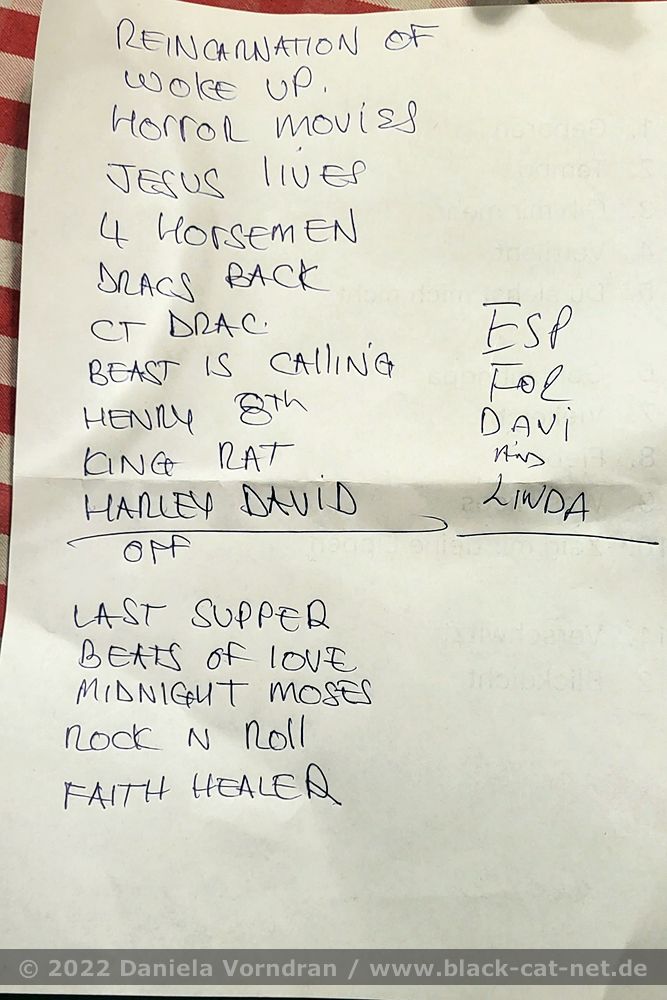 REINCARNATION OF
WOKE UP.
HORROR MOVIES
JESUS LIVES
4 HORSEMEN
DRACS BACK
CT DRAC.
BEAST IS CALLING
HENRY 8TH
KING RAT
HARLEY DAVID
OFF
ESP
FOR
DAVI
AND
LINDA
LAST SUPPER
BEATS OF LOVE
MIDNIGHT MOSES
ROCK N ROLL
FAITH HEALER
© 2022 Daniela Vorndran / www.black-cat-net.de